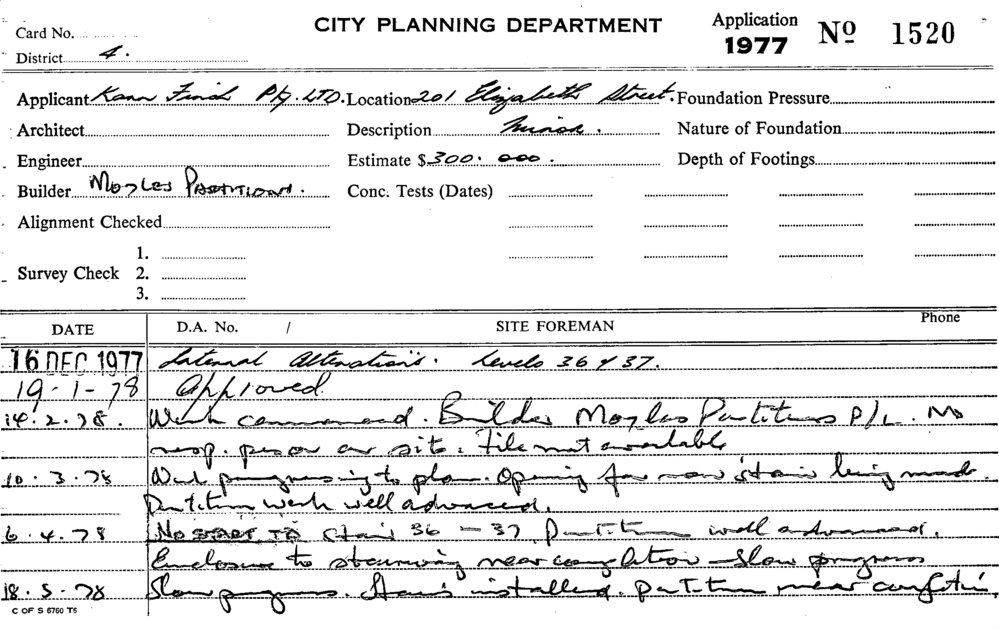 CITY PLANNING DEPARTMENT
Application
1977
Nº 1520
Card No.
District 4.
Applicant Kann Finch Pty. LTD. Location 201 Elizabeth Street. Foundation Pressure
Architect Description Minor. Nature of Foundation
Engineer Estimate $ 300.000. Depth of Footings
Builder Moyles Partitions. Conc. Tests (Dates)
Alignment Checked
1.
Survey Check 2.
3.
DATE D.A. No. / SITE FOREMAN Phone
16 DEC 1977 Internal Alterations. Levels 36 & 37.
19-1-78 Approved.
14.2.78. Work commenced. Builder Moyles Partitions P/L. No
resp. person on site. File not available
10.3.78 Work progressing to plan. Opening for new stair being made.
Partition work well advanced.
6.4.78 No START TO Stair 36 - 37. Partition well advanced.
Enclosure to stairway near completion Slow progress
18.5.78 Slow progress. Stairs installed. Partition near completion.
C OF S 6760 T6